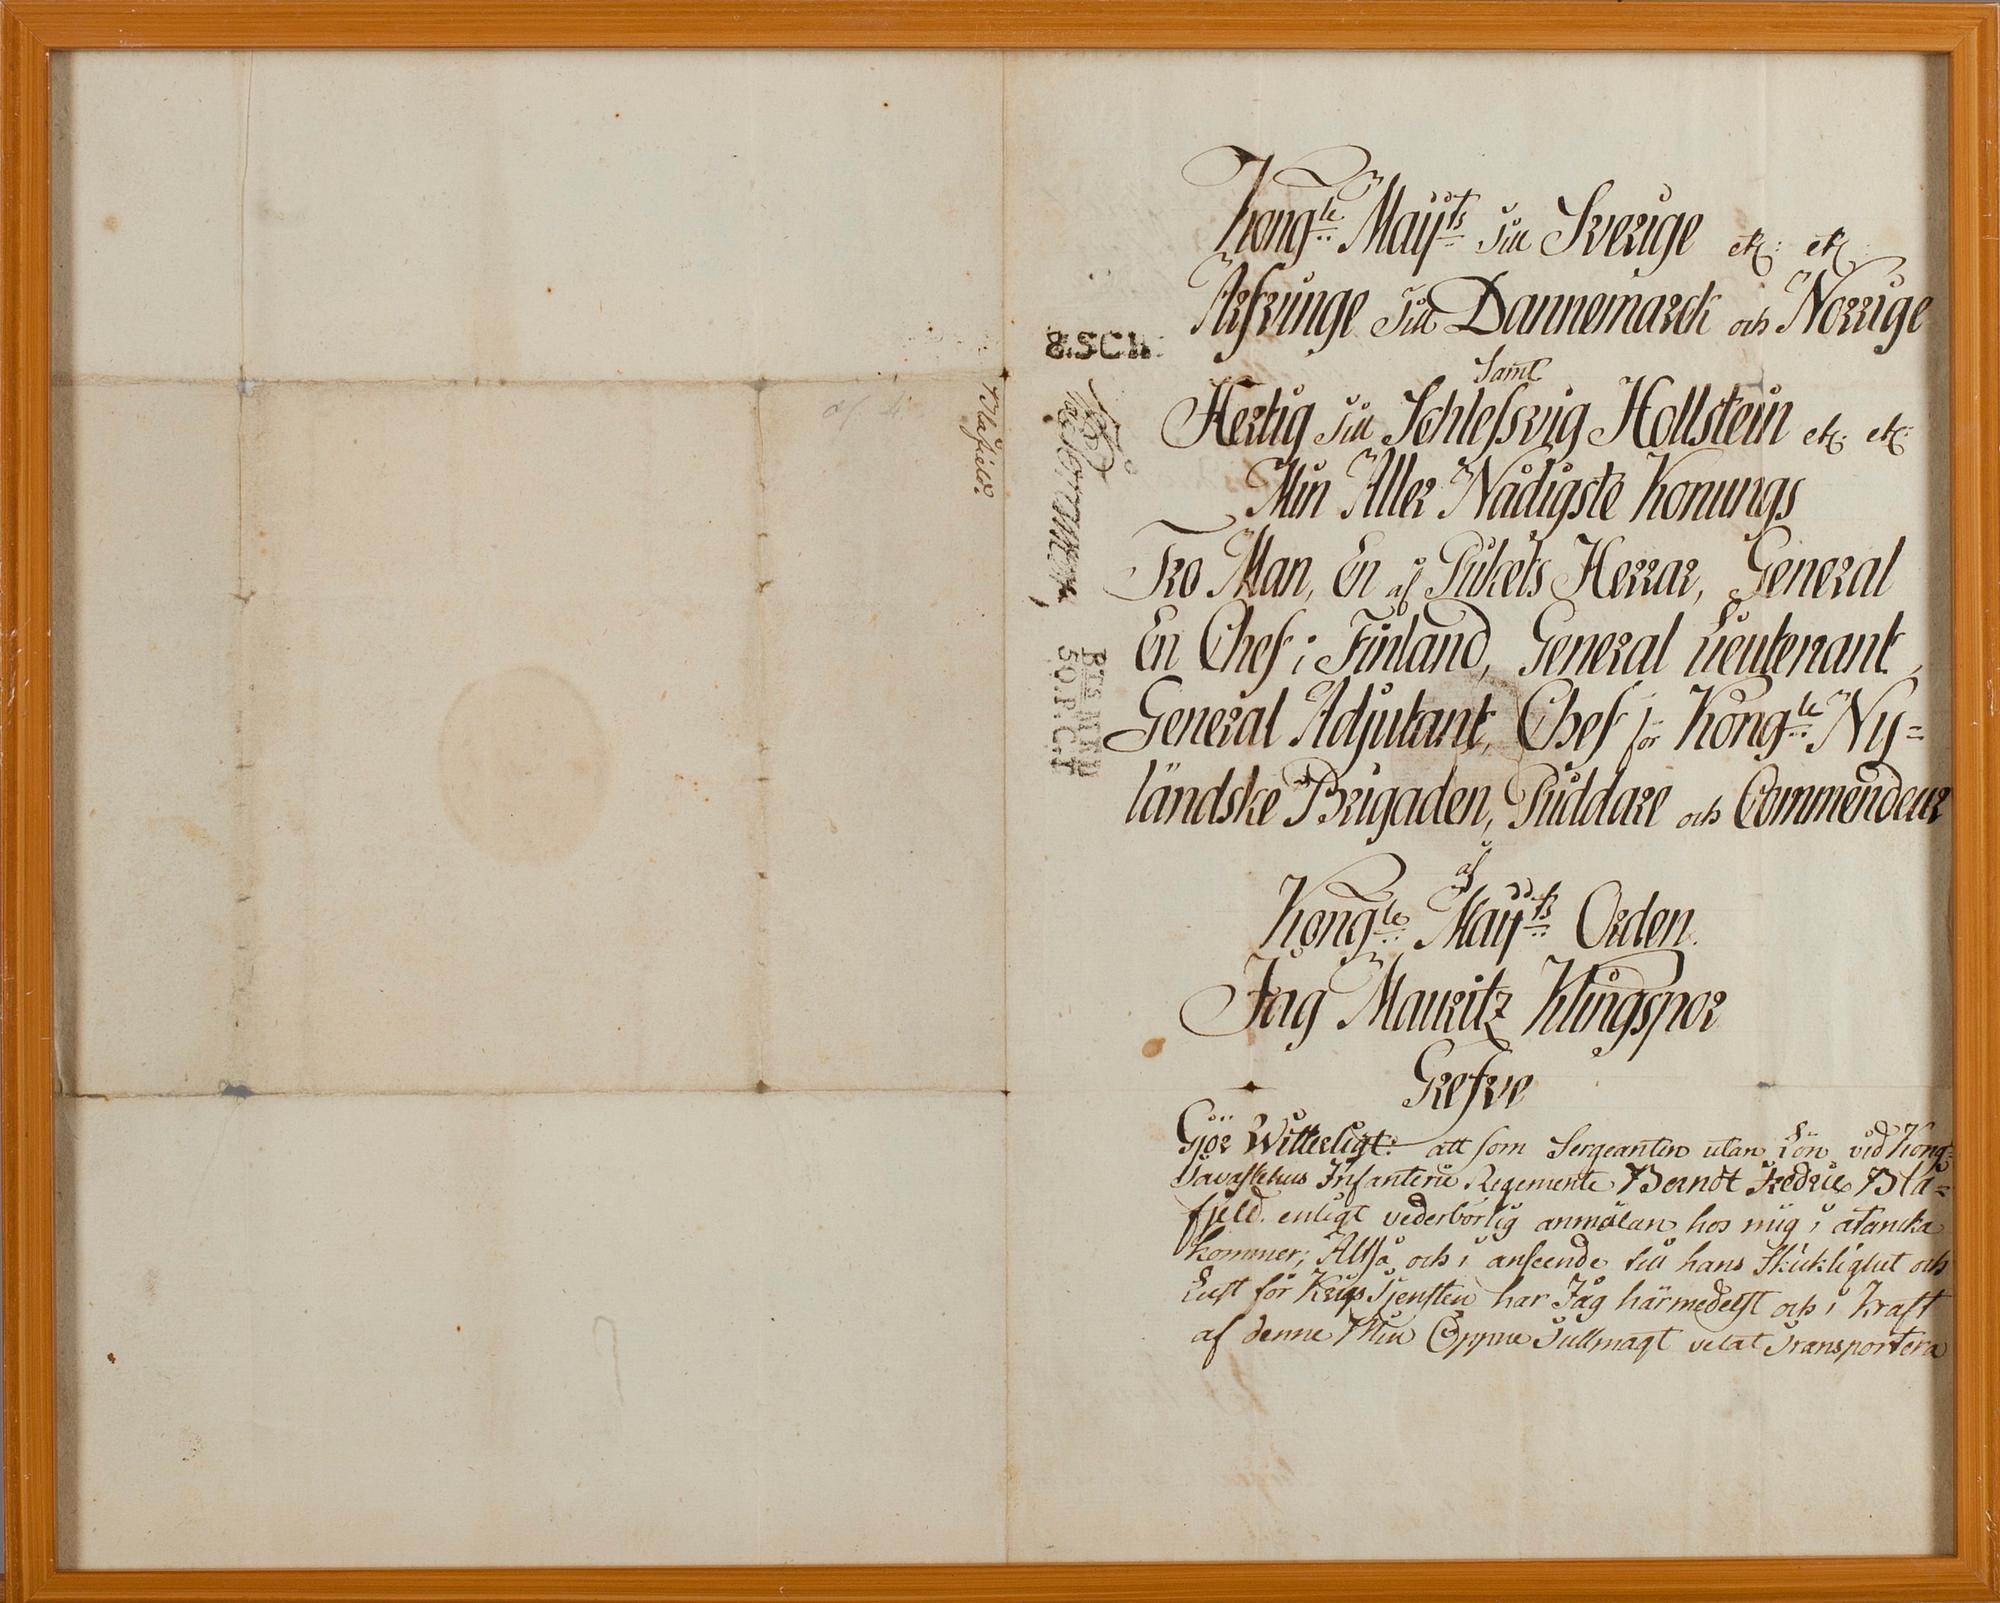 8.SCH.
Blafield
BTS MKD
50.P.C.T
Kongle Mayts till Sverige etc: etc:
Arfvinge till Dannemarck och Norrige
Samt
Hertig till Schlesvig Hollstein etc: etc:
Min Aller Nådigste Konungs
Tro Man, En af Rikets Herrar, General
En Chef i Finland, General Lieutenant,
General Adjutant, Chef för Kongle Ny=
ländske Brigaden, Riddare och Commendeur
af
Kongle Mayts Orden.
Jag Mauritz Klingspor
Grefve
Gjör Witterligt: att som Sergeanten utan Lön vid Kong:
Tavastehus Infanterie Regemente Berndt Fredric Blå=
fjeld. enligt vederbörlig anmälan hos mig i åtancka
kommer; Altså och i anseende till hans Skicklighet och
Lust för Krigs Tjensten har Jag härmedelst och i kraft
af denne Min Öppne Fullmagt velat Transportera